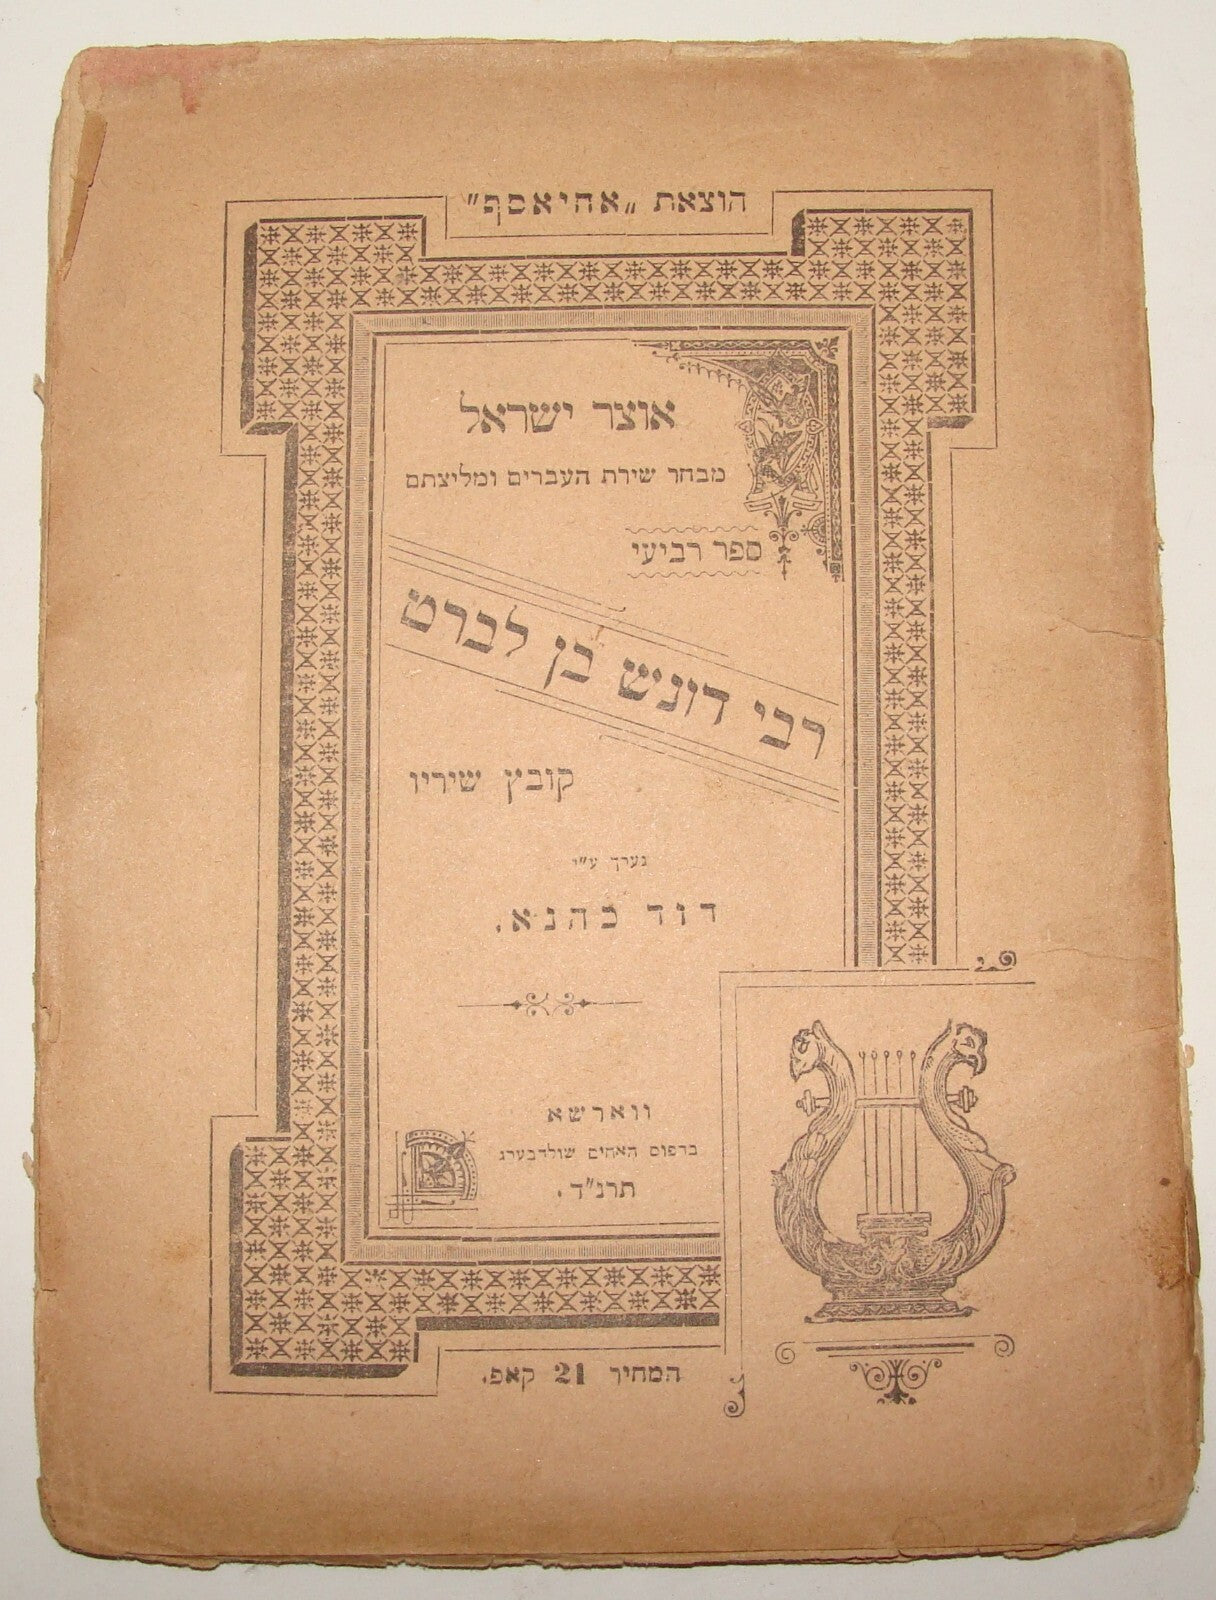 הוצאת „אחיאסף"
אוצר ישראל
מבחר שירת העברים ומליצתם
ספר רביעי
רבי דונש בן לברט
קובץ שיריו
נערך ע"י
דוד כהנא.
ווארשא
בדפוס האחים שולדבערג
תרנ"ד.
המחיר 21 קאפ.